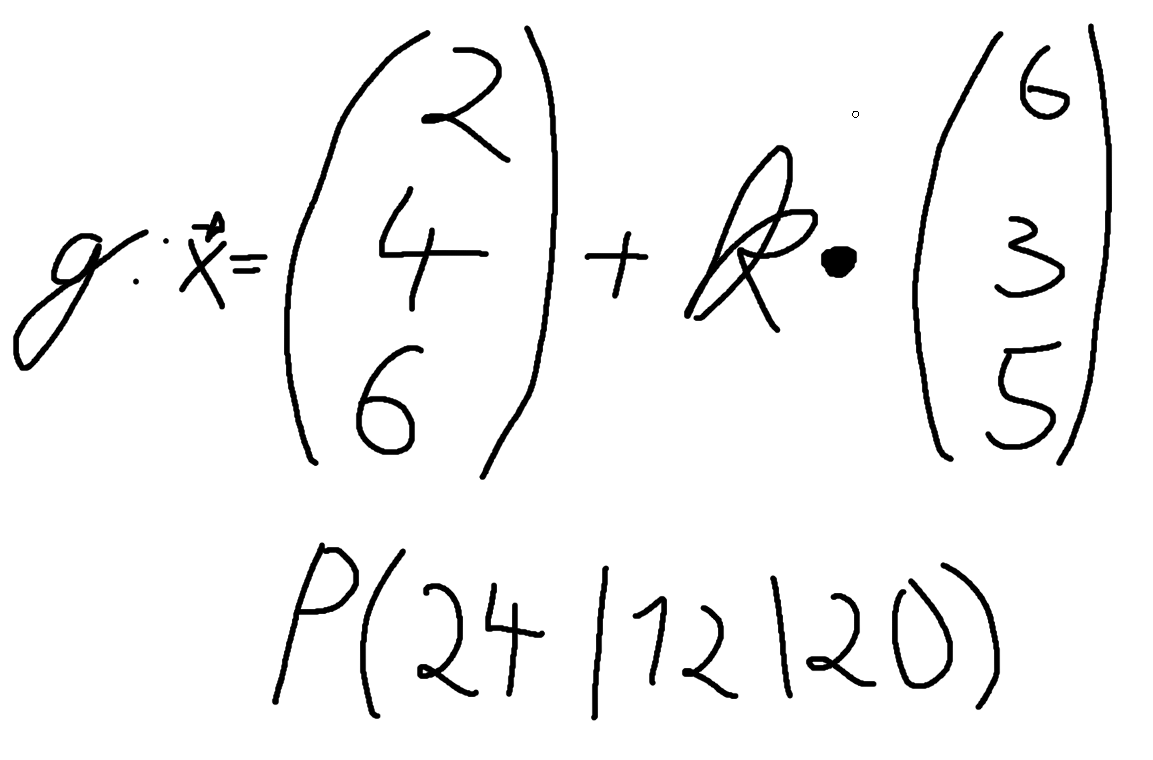 g: x⃗ = (2 4 6) + k • (6 3 5)
P(24|12|20)